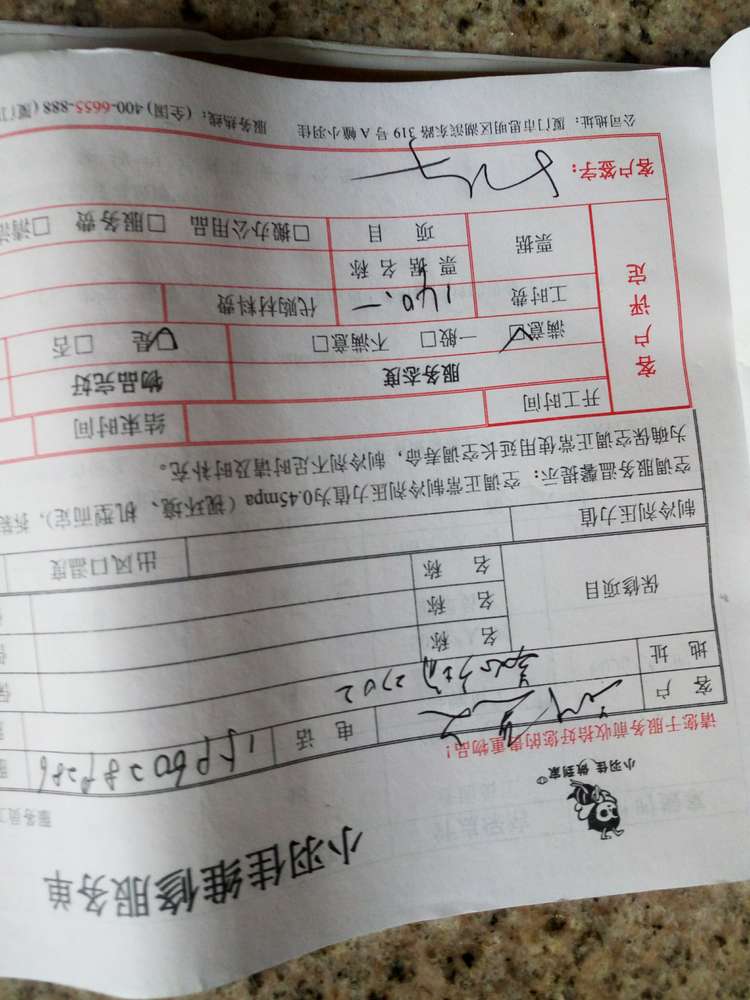 小羽佳维修服务单
小羽佳 做到家
服务员工
请您于服务前收拾好您的贵重物品!
客户 电话
地址 2702
保修项目 名称
名称
名称
制冷剂压力值 出风口温度
空调服务温馨提示:空调正常制冷剂压力值为0.45mpa(视环境、机型而定),拆装
为确保空调正常使用延长空调寿命,制冷剂不足时请及时补充。
客户评定
开工时间 结束时间
服务态度 物品完好
满意□ 一般□ 不满意□ □是 □否
工时费 140.— 代购材料费
票据 票据名称
项目 □搬办公用品 □服务费 □清洁
客户签字:
公司地址:厦门市思明区湖滨东路 319 号 A 幢小羽佳 服务热线:(全国) 400-6655-888 (厦门